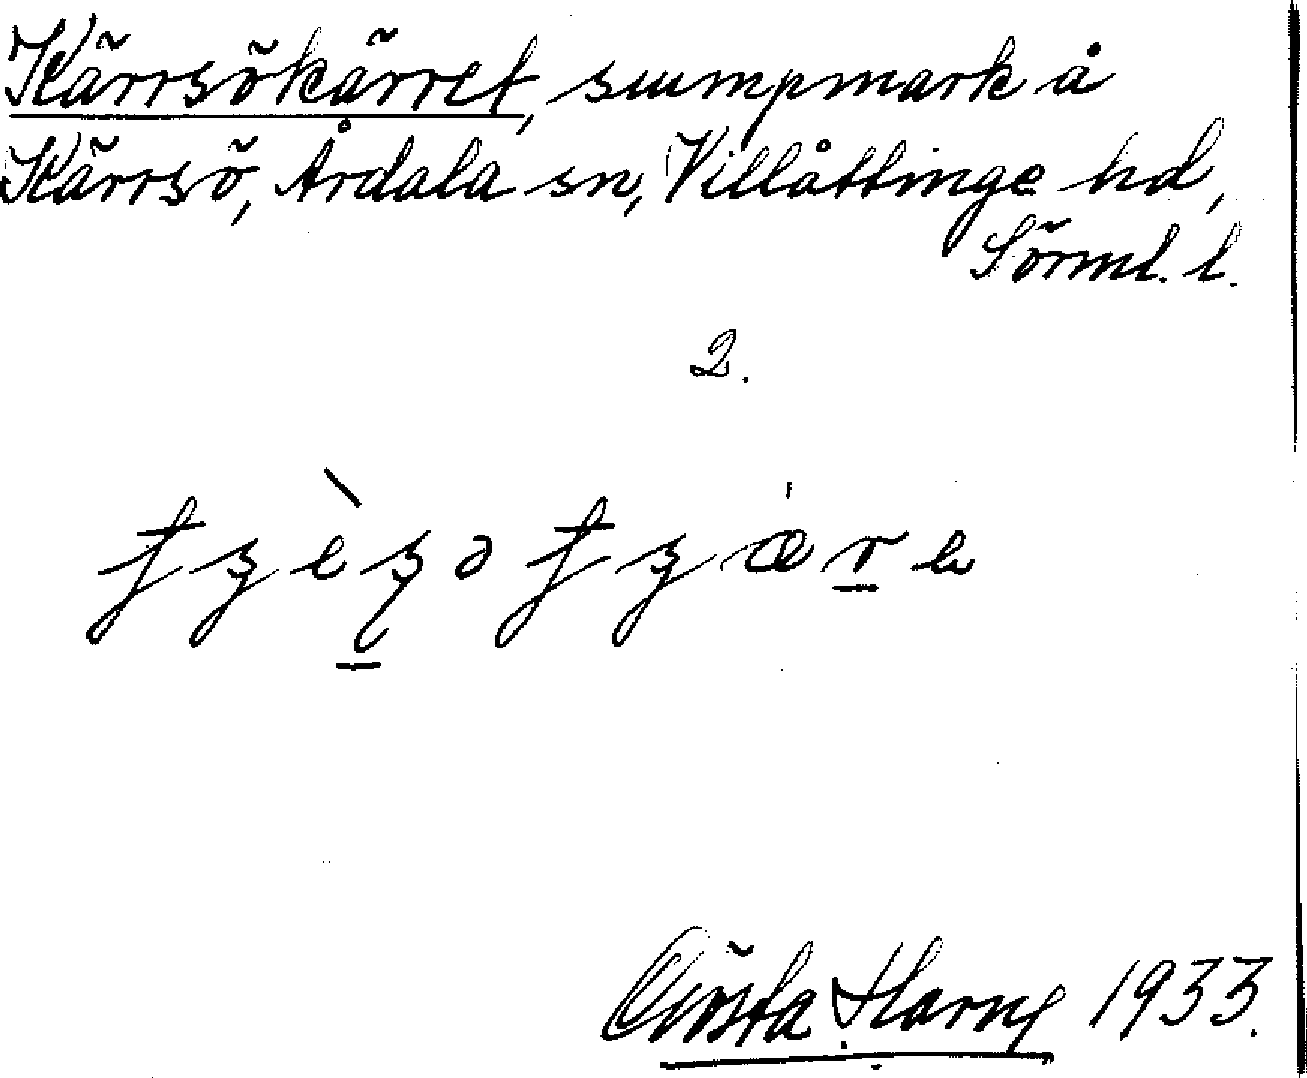 Kärrsökärret, sumpmark å
Kärrsö, Årdala sn, Villåttinge hd,
Sörml. l.
2.
Gösta Harng 1933.